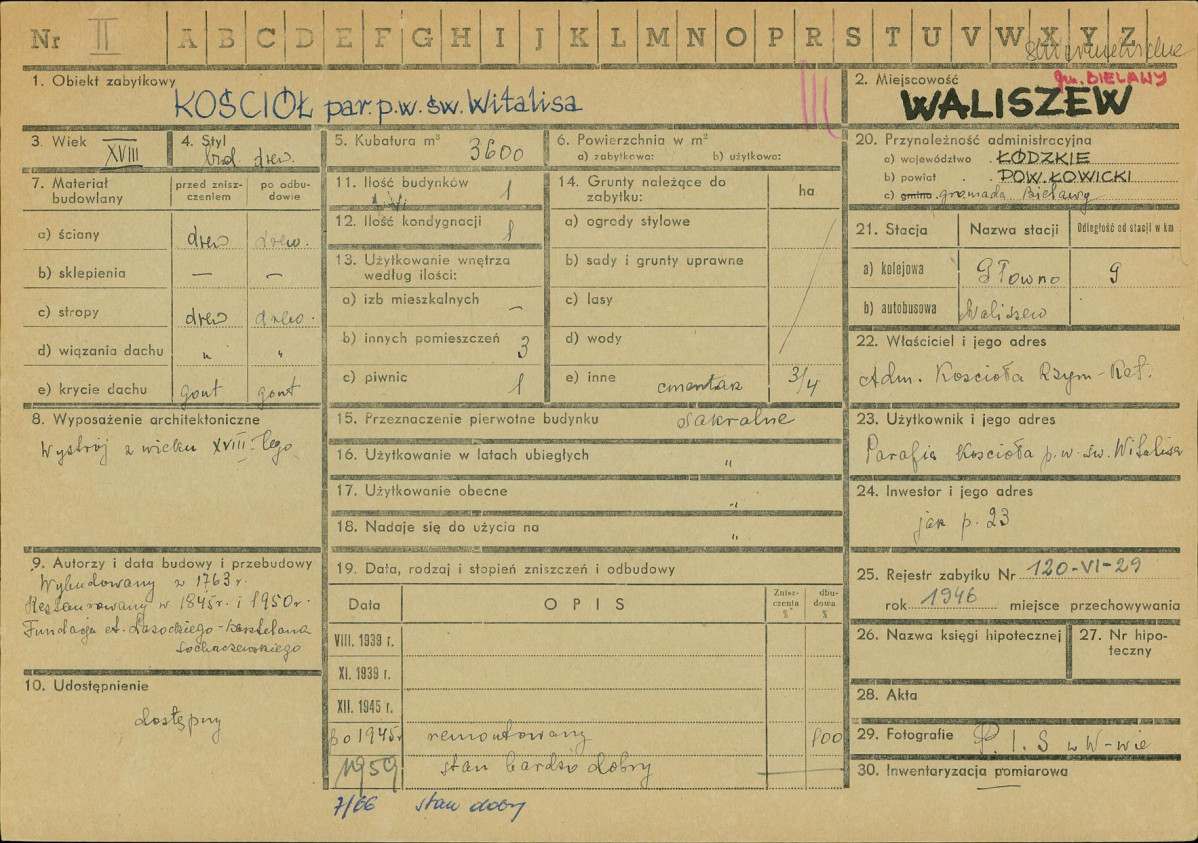 Nr II A B C D E F G H I J K L M N O P R S T U V W X Y Z
skierniewickie
1. Obiekt zabytkowy
KOŚCIÓŁ par. p.w. św. Witalisa
III
2. Miejscowość
gm. BIELAWY
WALISZEW
3. Wiek XVIII
4. Styl
drew.
5. Kubatura m³ 3600
6. Powierzchnia w m²
a) zabytkowa: b) użytkowa:
7. Materiał budowlany
przed znisz-
czeniem
po odbu-
dowie
a) ściany drew drew.
b) sklepienia — —
c) stropy drew drew.
d) wiązania dachu " "
e) krycie dachu gont gont
8. Wyposażenie architektoniczne
Wystrój z wieku XVIII-tego
9. Autorzy i data budowy i przebudowy
Wybudowany z 1763 r.
Restaurowany w 1845 r. i 1950 r.
Fundacja A. Lasockiego - Kasztelana
Sochaczewskiego
10. Udostępnienie
dostępny
11. Ilość budynków 1
12. Ilość kondygnacji 1
13. Użytkowanie wnętrza
według ilości:
a) izb mieszkalnych —
b) innych pomieszczeń 3
c) piwnic 1
14. Grunty należące do
zabytku:
ha
a) ogrody stylowe
b) sady i grunty uprawne
c) lasy
d) wody
e) inne cmentarz 3/4
15. Przeznaczenie pierwotne budynku sakralne
16. Użytkowanie w latach ubiegłych "
17. Użytkowanie obecne "
18. Nadaje się do użycia na "
19. Data, rodzaj i stopień zniszczeń i odbudowy
Data OPIS
Znisz-
czenia
%
dbu-
dowa
%
VIII. 1939 r.
XI. 1939 r.
XII. 1945 r.
po 1945 r remontowany 100
1959 stan bardzo dobry —
7/66 stan dobry
20. Przynależność administracyjna
a) województwo ŁÓDZKIE
b) powiat POW. ŁOWICKI
c) gmina gromada Bielawy
21. Stacja Nazwa stacji Odległość od stacji w km
a) kolejowa Głowno 9
b) autobusowa Waliszew
22. Właściciel i jego adres
Adm. Kościoła Rzym-Kat.
23. Użytkownik i jego adres
Parafia Kościoła p.w. św. Witalisa
24. Inwestor i jego adres
jak p. 23
25. Rejestr zabytku Nr 120-VI-29
rok 1946 miejsce przechowywania
26. Nazwa księgi hipotecznej
27. Nr hipo-
teczny
28. Akta
29. Fotografie P.I.S w W-wie
30. Inwentaryzacja pomiarowa —